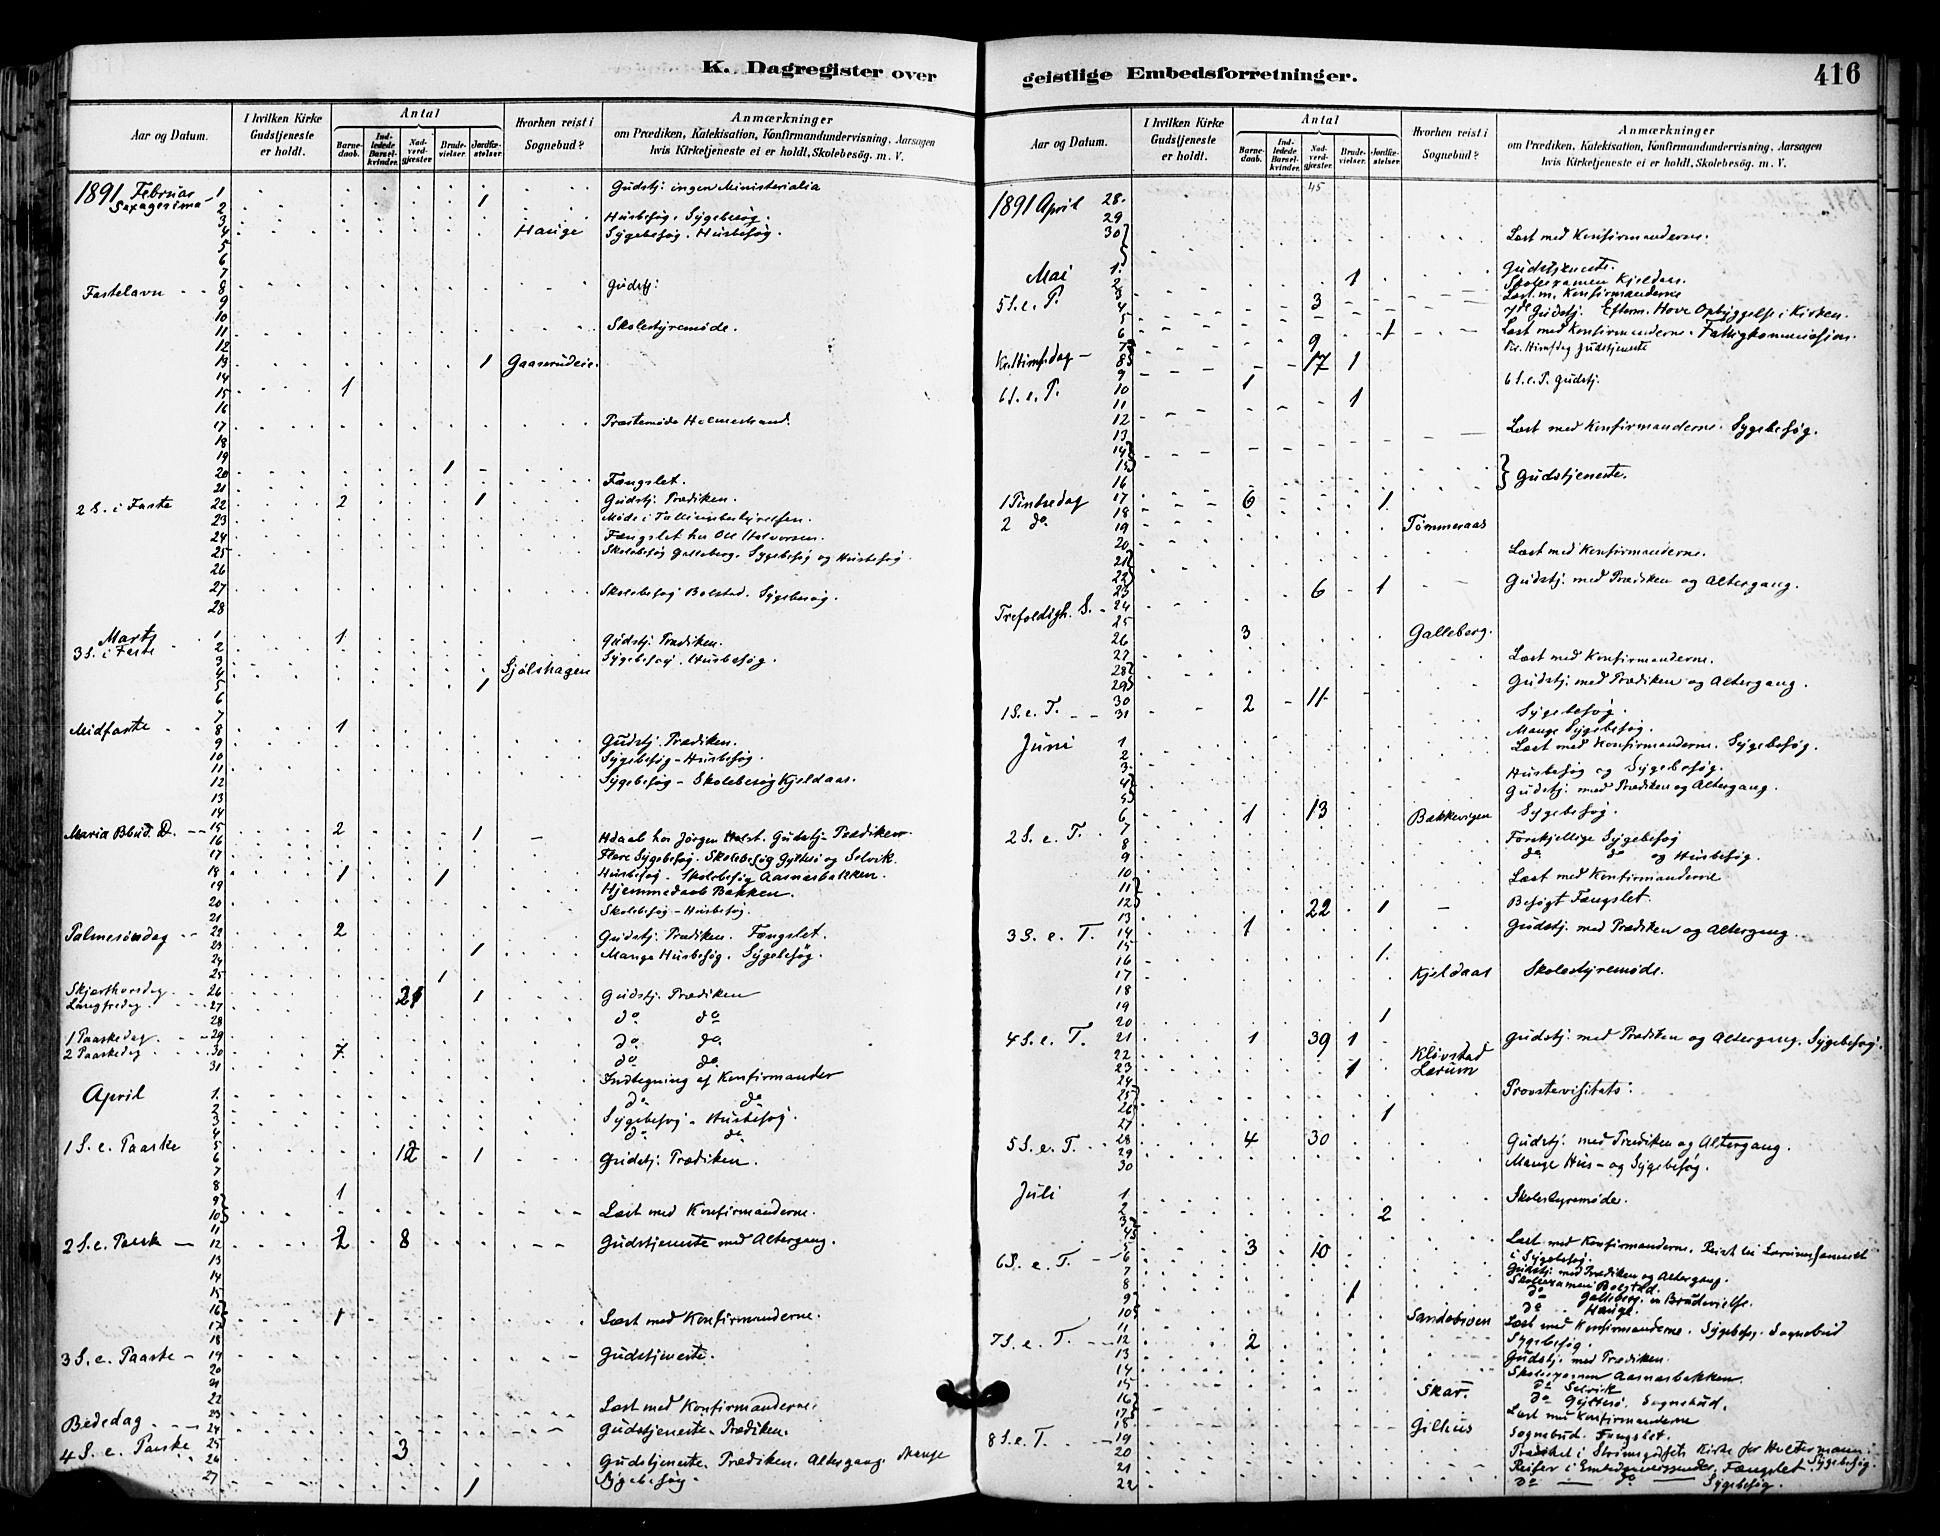 K. Dagregister over geistlige Embedsforretninger.
416
Aar og Datum.
I hvilken Kirke Gudstjeneste er holdt.
Antal
Barnedaab.
Indledede Barselkvinder.
Nadverdgjæster
Brudevielser.
Jordfæstelser
Hvorhen reist i Sognebud?
Anmærkninger
om Prædiken, Katekisation, Konfirmandundervisning, Aarsagen
hvis Kirketjeneste ei er holdt, Skolebesög. m. V.
1891 Februar 1 Gudstj. ingen Ministerialia
Sexagesima 2 1
3 Husbesøg. Sygebesøg.
4 Hauge Sygebesøg. Husbesøg.
5
6
7
Fastelavn 8 Gudstj:
9
10
11 Skolestyremøde.
12
13 1 Gaaserudeie.
14
15 1
16
17 Præstemøde Holmestrand.
18
19
20 1 Fængslet.
21
2 S. i Faste 22 2 1 Gudstj. Prædiken.
23
24 Fængslet hos Ole Halvorsen.
25 Skolebesøg Galleberg. Sygebesøg og Husbesøg
26
27 Skolebesøg Bolstad. Sygebesøg.
28
Marts 1 1 Gudstj: Prædiken.
3 S. i Faste 2 Sygebesøg. Husbesøg.
3
4 Sjølshagen
5 1
6
7
Midfaste 8 1 Gudstj. Prædiken.
9
10 Sygebesøg - Husbesøg.
11
12 Sygebesøg - Skolebesøg Kjeldaas.
13
14
Maria Bbud. D. 15 2 1 Hdaab hos Jørgen Holst. Gudstj - Prædiken
16
17 Flere Sygebesøg. Skolebesøg Gyltesø og Selvik.
18 1 1 Husbesøg. Skolebesøg Aasnæsbakken.
19 Hjemmedaab Bakken.
20 Skolebesøg - Husbesøg.
21
Palmesøndag 22 2 Gudstj. Prædiken. Fængslet.
23 1 Mange Husbesøg. Sygebesøg.
24
25 1
Skjærthorsdag 26 21 1 Gudstj. Prædiken
Langfredag 27 do do
28
1 Paaskedag 29 do do.
2 Paaskedag 30 7 do do.
31 Indtegning af Konfirmander
April 1 do do
2
3 Sygebesøg. Husbesøg.
4 do do
1 S. e. Paaske 5 12 1 Gudstj. Prædiken.
6
7
8 1
9
10 Læst med Konfirmanderne.
11
2 S. e. Paaske 12 2 8 Gudstjeneste med Altergang.
13
14
15
16
17 1 Læst med Konfirmanderne.
18
3 S. e. Paaske 19 Gudstjeneste.
20
21
22 Læst med Konfirmanderne.
23
Bededag 24 Gudstjeneste. Prædiken.
25
4 S. e. Paaske 26 3 Gudstjeneste. Prædiken. Altergang. Mange
27 1 Sygebesøg.
Aar og Datum.
I hvilken Kirke Gudstjeneste er holdt.
Antal
Barnedaab.
Indledede Barselkvinder.
Nadverdgjæster
Brudevielser.
Jordfæstelser
Hvorhen reist i Sognebud?
Anmærkninger
om Prædiken, Katekisation, Konfirmandundervisning, Aarsagen
hvis Kirketjeneste ei er holdt, Skolebesøg. m. V.
45
1891 April 28.
29
30 Læst med Konfirmanderne.
Mai 1. Gudstjeneste.
2 1 Skoleexamen Kjeldaas.
3 Læst m. Konfirmanderne
5 S. e. P. 4 3 Gudstj. Efterm. Hove Opbyggelse i Kirken.
5
6 1 Læst med Konfirmanderne. Fattigkommission.
7 9 Kr. Himfdag Gudstjeneste
Kr. Himfdag 8 17 1
9 6 S. e. P. Gudstj.
6 S. e. P. 10 1
11 1
12 Læst med Konfirmanderne. Sygebesøg.
13
14
15
16 Gudstjeneste.
1 Pintsedag 17 6 1
2 do 18
19 Tømmeraas
20
21 Læst med Konfirmanderne.
22
23 6 1 Gudstj. med Prædiken og Altergang.
Trefoldigh. S. 24
25
26 3 Galleberg.
27 Læst med Konfirmanderne.
28
29 Gudstj. med Prædiken og Altergang.
30
1 S. e. T. 31 2 11 Sygebesøg.
Mange Sygebesøg.
Juni 1 Læst med Konfirmanderne. Sygebesøg.
2
3 Husbesøg og Sygebesøg.
4 Gudstj. med Prædiken og Altergang.
5
6 1 13 Bækkevigen Sygebesøg.
2 S. e. T. 7 Forskjellige Sygebesøg
8 do do og Husbesøg.
9
10 Læst med Konfirmanderne
11
12 22 1 Besøgt Fængslet.
13
3 S. e. T. 14 1 Gudstj. med Prædiken og Altergang.
15 1
16
17 Kjeldaas Skolestyremøde.
18
19
20 1
4 S. e. T. 21 1 39 1 Gudstj. med Prædiken og Altergang. Sygebesøg.
22 Kløvstad
23 1 Lærum
24 Provstevisitats:
25
26 1
27
5 S. e. T. 28 4 30 Gudstj. med Prædiken og Altergang.
29 Mange Hus- og Sygebesøg.
30
Juli 1 Skolestyremøde.
2 2
3
4 Læst med Konfirmanderne.
5 3 10 i Sygebesøg.
6 S. e. T. 6 Gudstj. med Prædiken og Altergang.
7 Skoleexamen Bolstad.
8 do Galleberg. Brudevielse.
9 1 do Hauge.
10 Sandebroen Læst med Konfirmanderne. Sygebesøg. Sognebud
11 Sygebesøg.
7 S. e. T. 12 2 Gudstj. med Prædiken.
13 Skoleexamen Aasnæsbakken.
14 do Selvik
15 Skar. do Gyltesø. Sognebud.
16 Læst med Konfirmanderne
17
18 Gilhus Sognebud. Fængslet.
8 S. e. T. 19 Prædiket i Strømsgodsets Kirke for Holtermann.
20
21 Reiser i Fængslet Sygebesøg.
22 do do Sygebesøg.